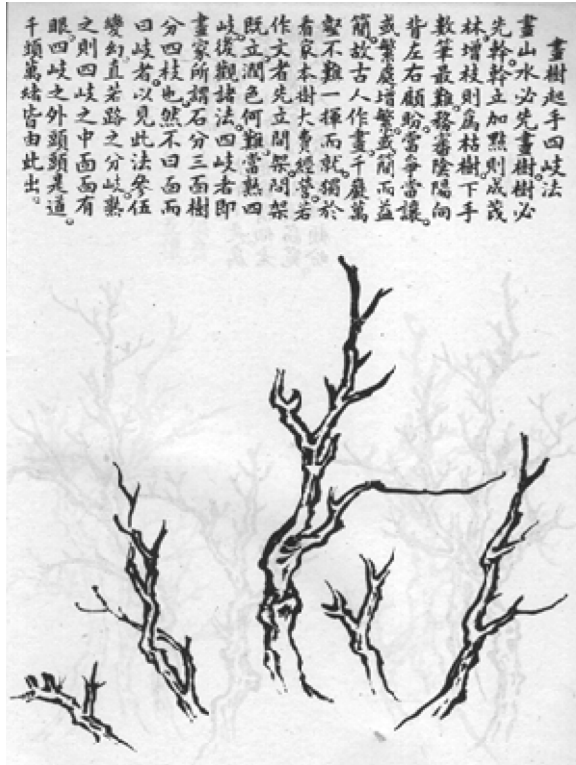 畫樹起手四岐法
畫山水必先畫樹樹必
先幹幹立加點則成茂
林增枝則爲枯樹下手
數筆最難務審陰陽向
背左右顧盼當爭當讓。
或繁處增繁或簡而益
簡。故古人作畫千巖萬
壑不難一揮而就獨於
看家本樹大費經營。若
作文者先立間架間架
既立潤色何難。當熟四
岐後觀諸法。四岐者即
畫家所謂石分三面樹
分四枝也。然不曰面而
曰岐者以見此法參伍
變幻直若路之分岐。熟
之則四岐之中面面有
眼四岐之外頭頭是道。
千頭萬緒皆由此出。